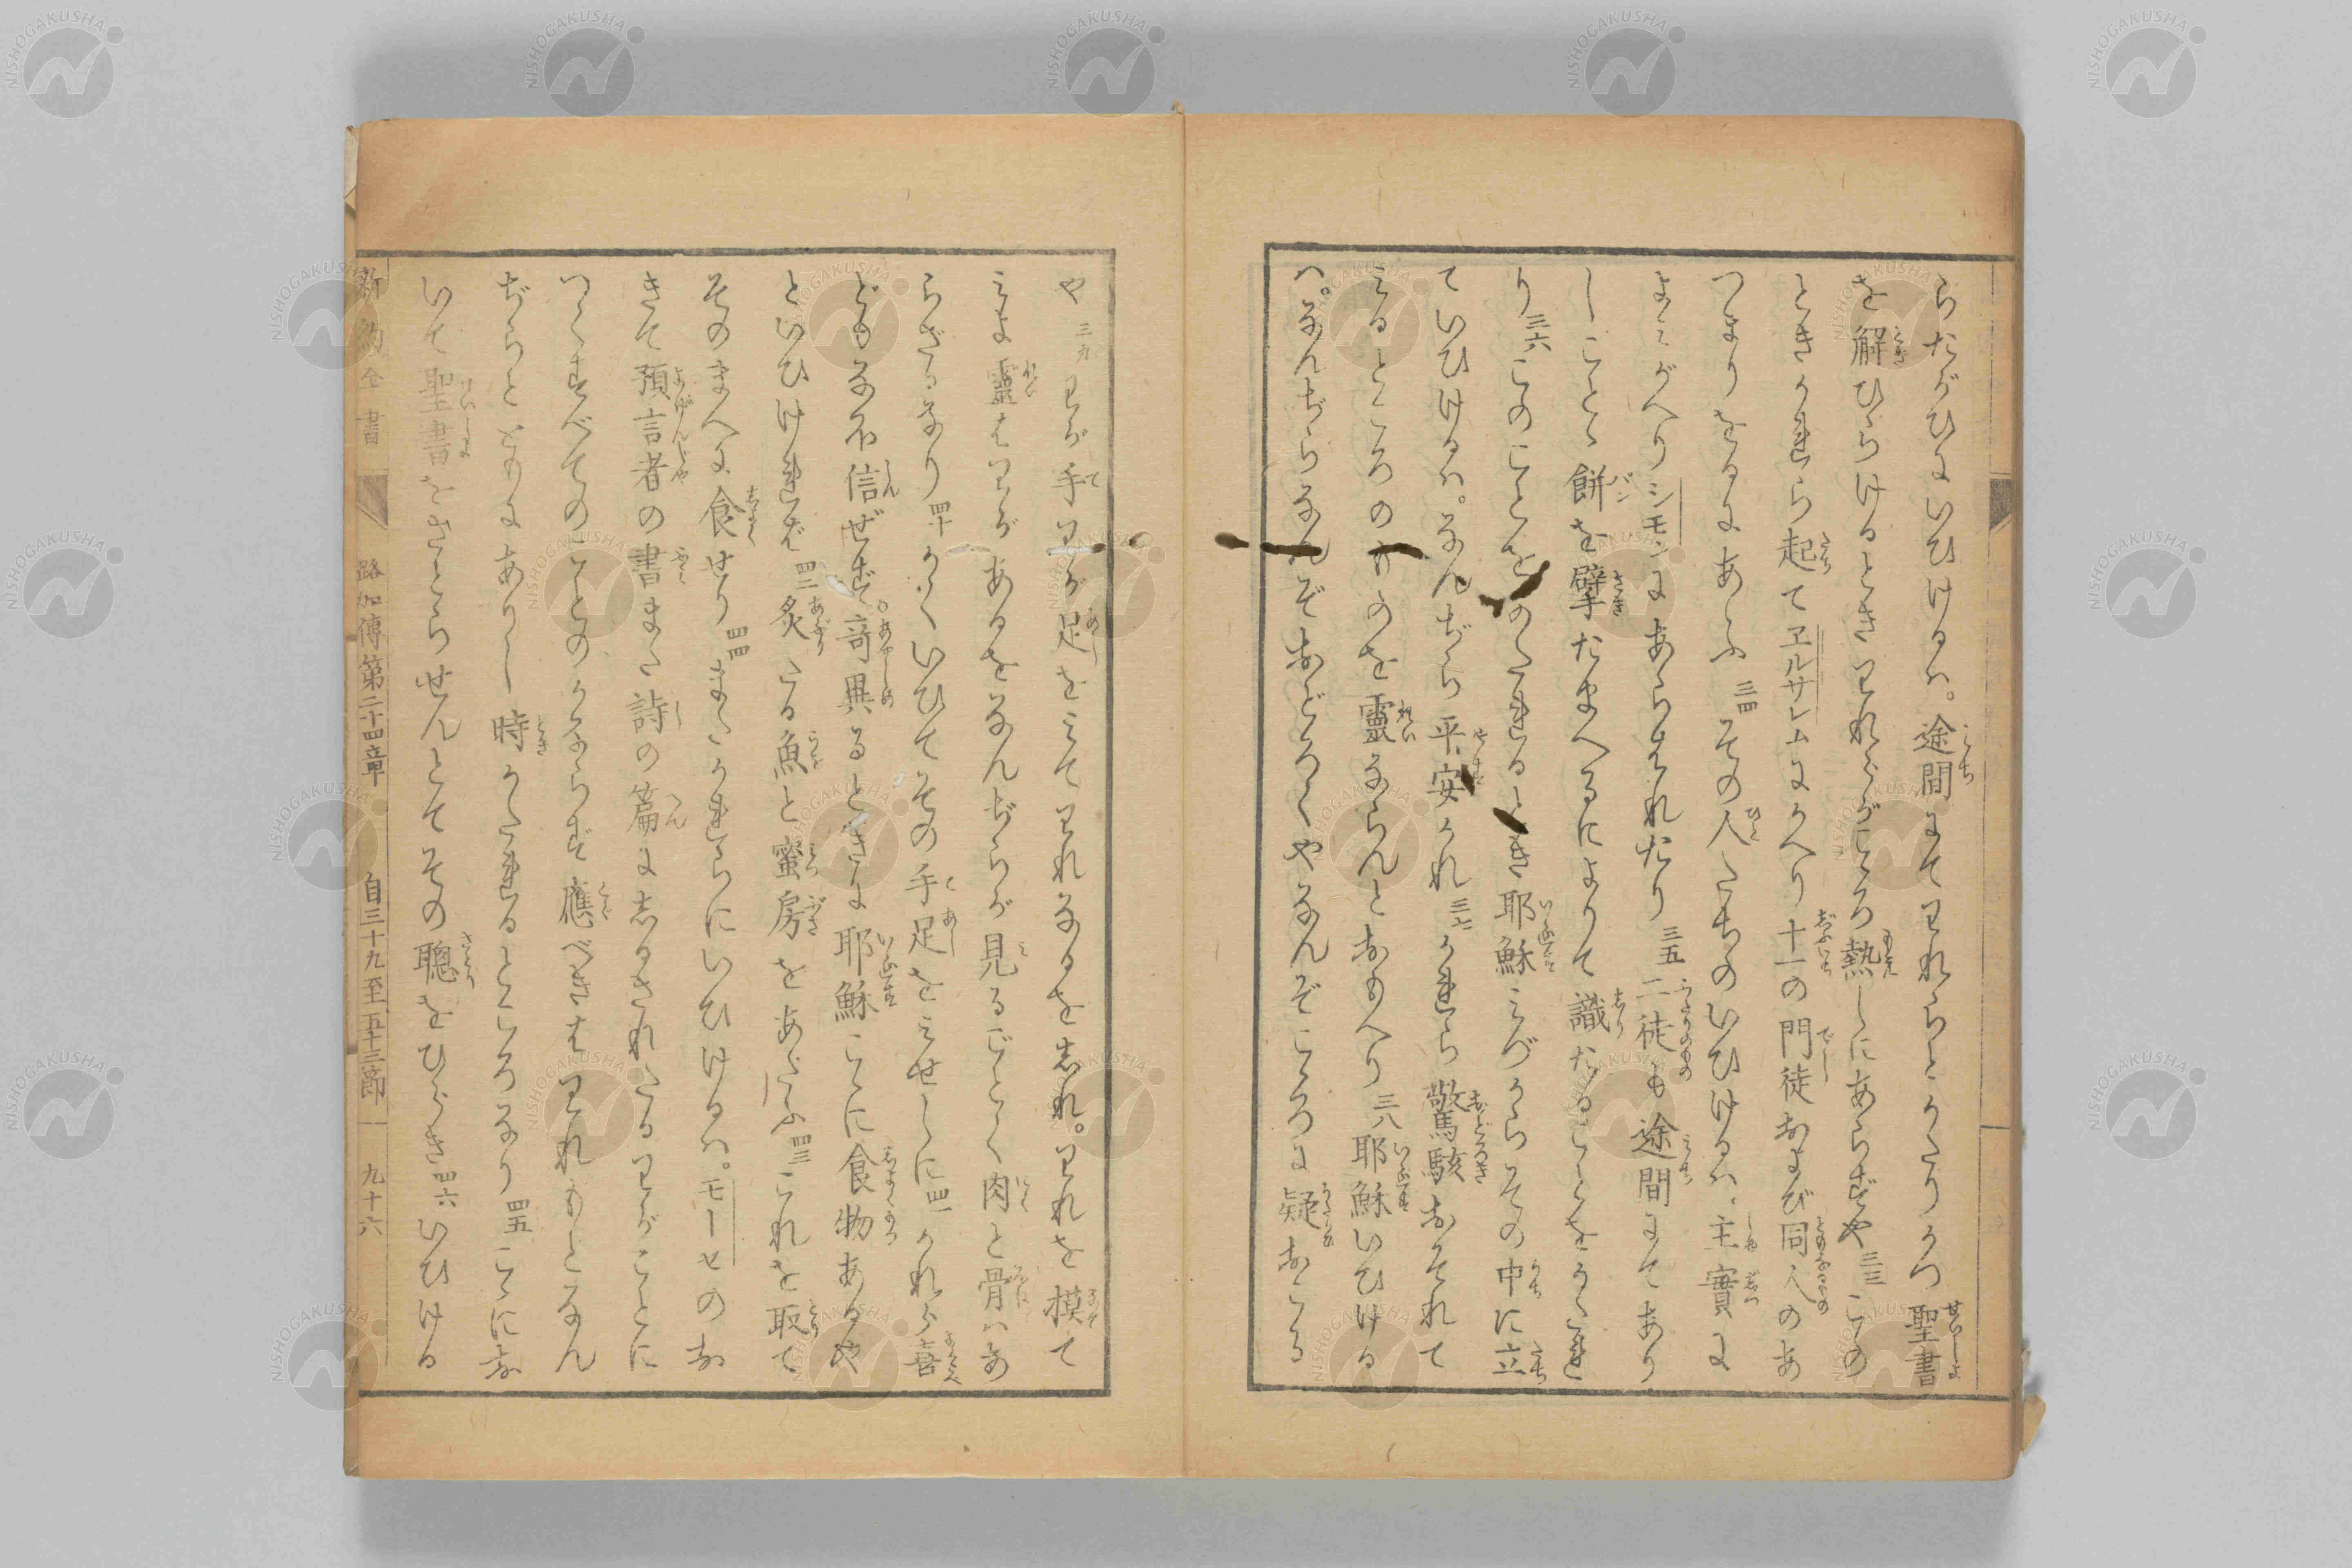 らたがひにいひけるハ。途間にてわれらとかたりかつ聖書
を解ひらけるときわれらがこゝろ熱しにあらずや三三この
ときかれら起てヱルサレムにかへり十一の門徒および同人のあ
つまりをるにあふ三四その人たちのいひけるハ。主實に
よみがへりシモンにあらはれたり三五二徒も途間にてあり
しことゝ餅を擘たまへるによりて識たることをかたれ
り三六このことをかたれるとき耶穌みづからその中に立
ていひけるハ。なんぢら平安かれ三七かれら驚駭おそれて
みるところのものを靈ならんとおもへり三八耶穌いひける
ハ。なんぢらなんぞおどろくやなんぞこゝろに疑おこる
や三九わが手わが足をみてわれなるを志れ。われを摸て
みよ靈はわがあるをなんぢらが見るごとく肉と骨ハあ
らざるなり四十かくいひてその手足をみせしに四一かれら喜
どもなほ信ぜず奇異るときに耶穌こゝに食物あるや
といひければ四二炙たる魚と蜜房をあたふ四三これを取て
そのまへに食せり四四またかれらにいひけるハ。モーセのお
きて預言者の書また詩の篇に志るされたるわがことに
つくすべてのことのかならず應べきはわれもとなん
ぢらとともにありし時かたれるところなり四五こゝにお
いて聖書をさとらせんとてその聰をひらき四六いひける
新約全書 路加傳第二十四章 自三十九至五十三節 九十六